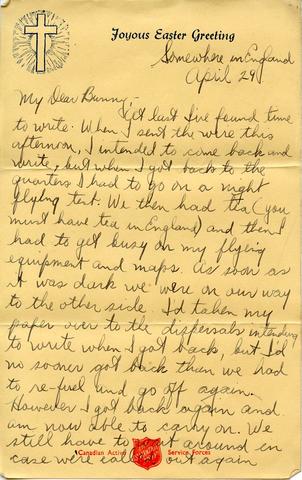 Joyous Easter Greeting
Somewhere in England
April 29
My Dear Bunny,-
At last I've found time
to write. When I sent the wire this
afternoon, I intended to come back and
write, but when I got back to the
quarters I had to go on a night
flying test. We then had tea (you
must have tea in England) and then I
had to get busy on my flying
equipment and maps. As soon as
it was dark we were on our way
to the other side. I'd taken my
paper over to the dispersals intending
to write when I got back, but I'd
no sooner got back than we had
to re-fuel and go off again.
However I got back again and
am now able to carry on. We
still have to around in
case we're called out again
Canadian Active Service Forces